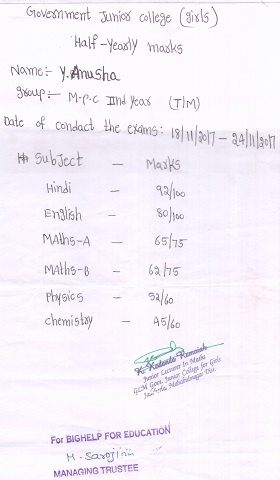 Government Junior college (girls)
Half-yearly marks
Name:- Y. Anusha
group:- M.P.C IInd year (T/M)
Date of conduct the exams: 18/11/2017 - 24/11/2017
Subject - Marks
Hindi - 92/100
English - 80/100
Maths-A - 65/75
Maths-B - 62/75
Physics - 52/60
chemistry - 45/60
Junior Lecturer In Maths
Govt. Junior College for Girls
For BIGHELP FOR EDUCATION
M. Sarojini
MANAGING TRUSTEE